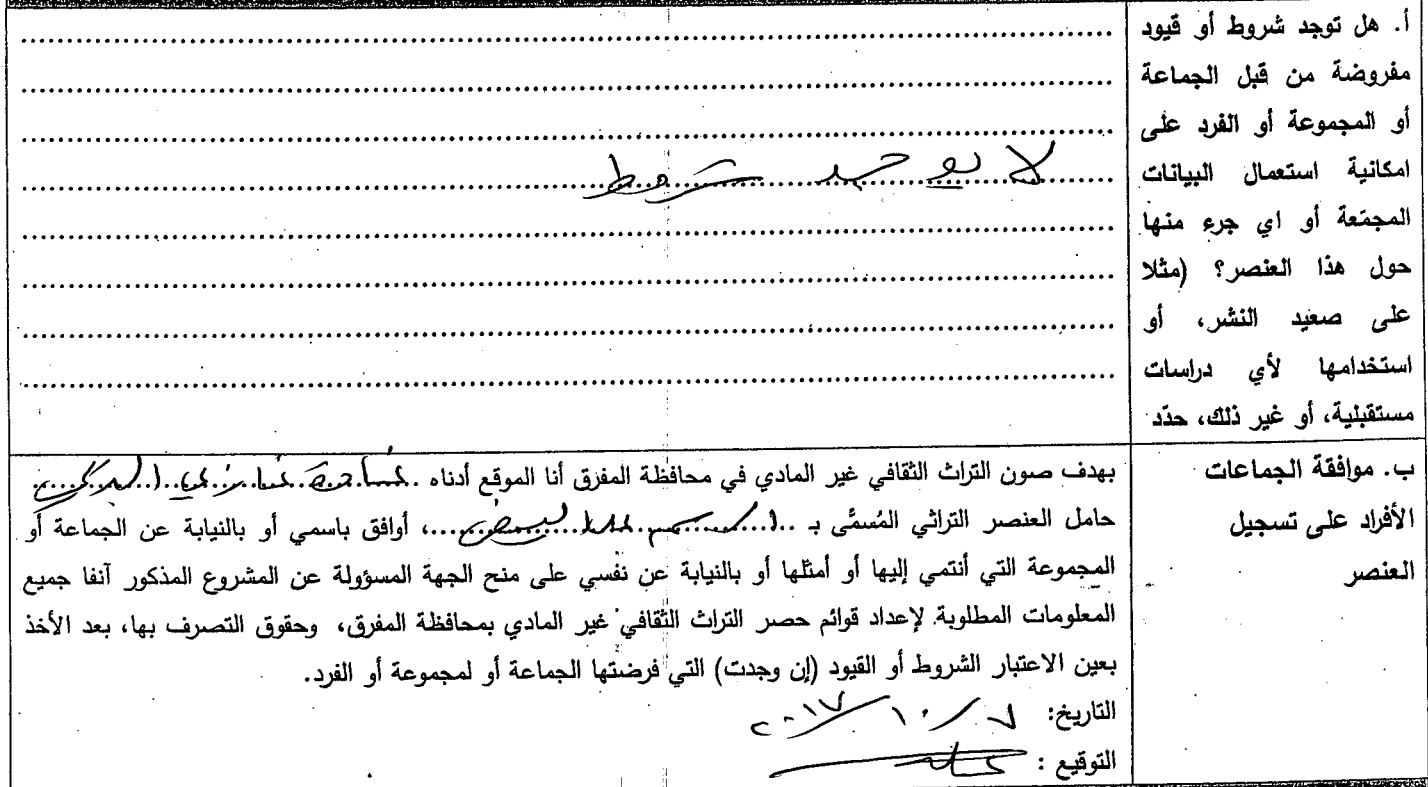 أ. هل توجد شروط أو قيود
مفروضة من قبل الجماعة
أو المجموعة أو الفرد على
امكانية استعمال البيانات
المجمّعة أو اي جرء منها
حول هذا العنصر؟ (مثلا
على صعيد النشر، أو
استخدامها لأي دراسات
مستقبلية، أو غير ذلك، حدّد
لا يوجد شروط
ب. موافقة الجماعات
الأفراد على تسجيل
العنصر
بهدف صون التراث الثقافي غير المادي في محافظة المفرق أنا الموقع أدناه
حامل العنصر التراثي المُسمَّى بـ ، أوافق باسمي أو بالنيابة عن الجماعة أو
المجموعة التي أنتمي إليها أو أمثلها أو بالنيابة عن نفسي على منح الجهة المسؤولة عن المشروع المذكور آنفا جميع
المعلومات المطلوبة لإعداد قوائم حصر التراث الثقافي غير المادي بمحافظة المفرق، وحقوق التصرف بها، بعد الأخذ
بعين الاعتبار الشروط أو القيود (إن وجدت) التي فرضتها الجماعة أو لمجموعة أو الفرد.
التاريخ: / ١٠ / ٢٠١٧
التوقيع :